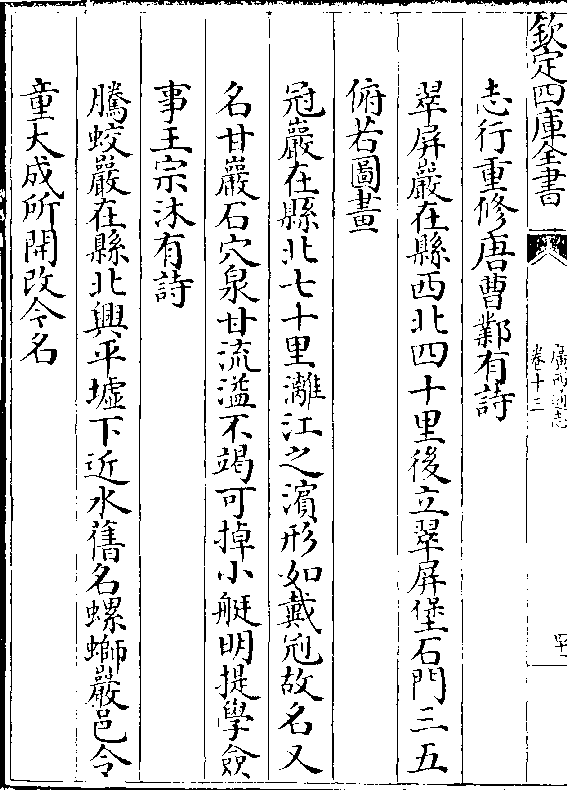 欽定四庫全書
廣西通志
卷十三
志行重修唐曹鄴有詩
翠屏巖在縣西北四十里後立翠屏堡石門三五
俯若圖畫
冠巖在縣北七十里灕江之濱形如戴冠故名又
名甘巖石穴泉甘流溢不竭可掉小艇明提學僉
事王宗沐有詩
騰蛟巖在縣北興平墟下近水舊名螺螄巖邑令
童大成所開改今名